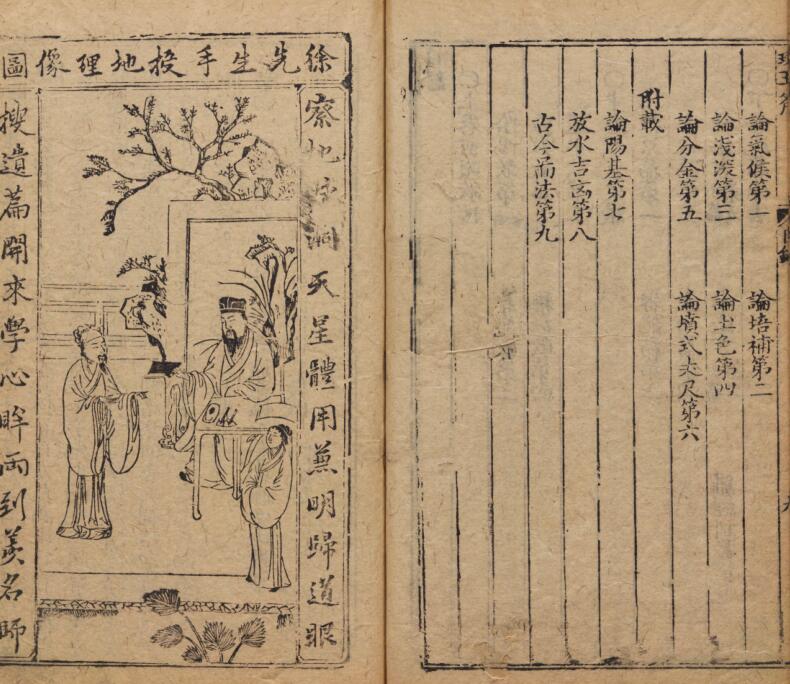 論氣候第一 論培補第二
論淺深第三 論土色第四
論分金第五 論墳式丈尺第六
附載
論陽基第七
放水吉凶第八
古今法第九
徐先生手授地理像圖
察地脉洞天星體用兼明歸道眼
搜遺篇開來學心眸兩到羨名師